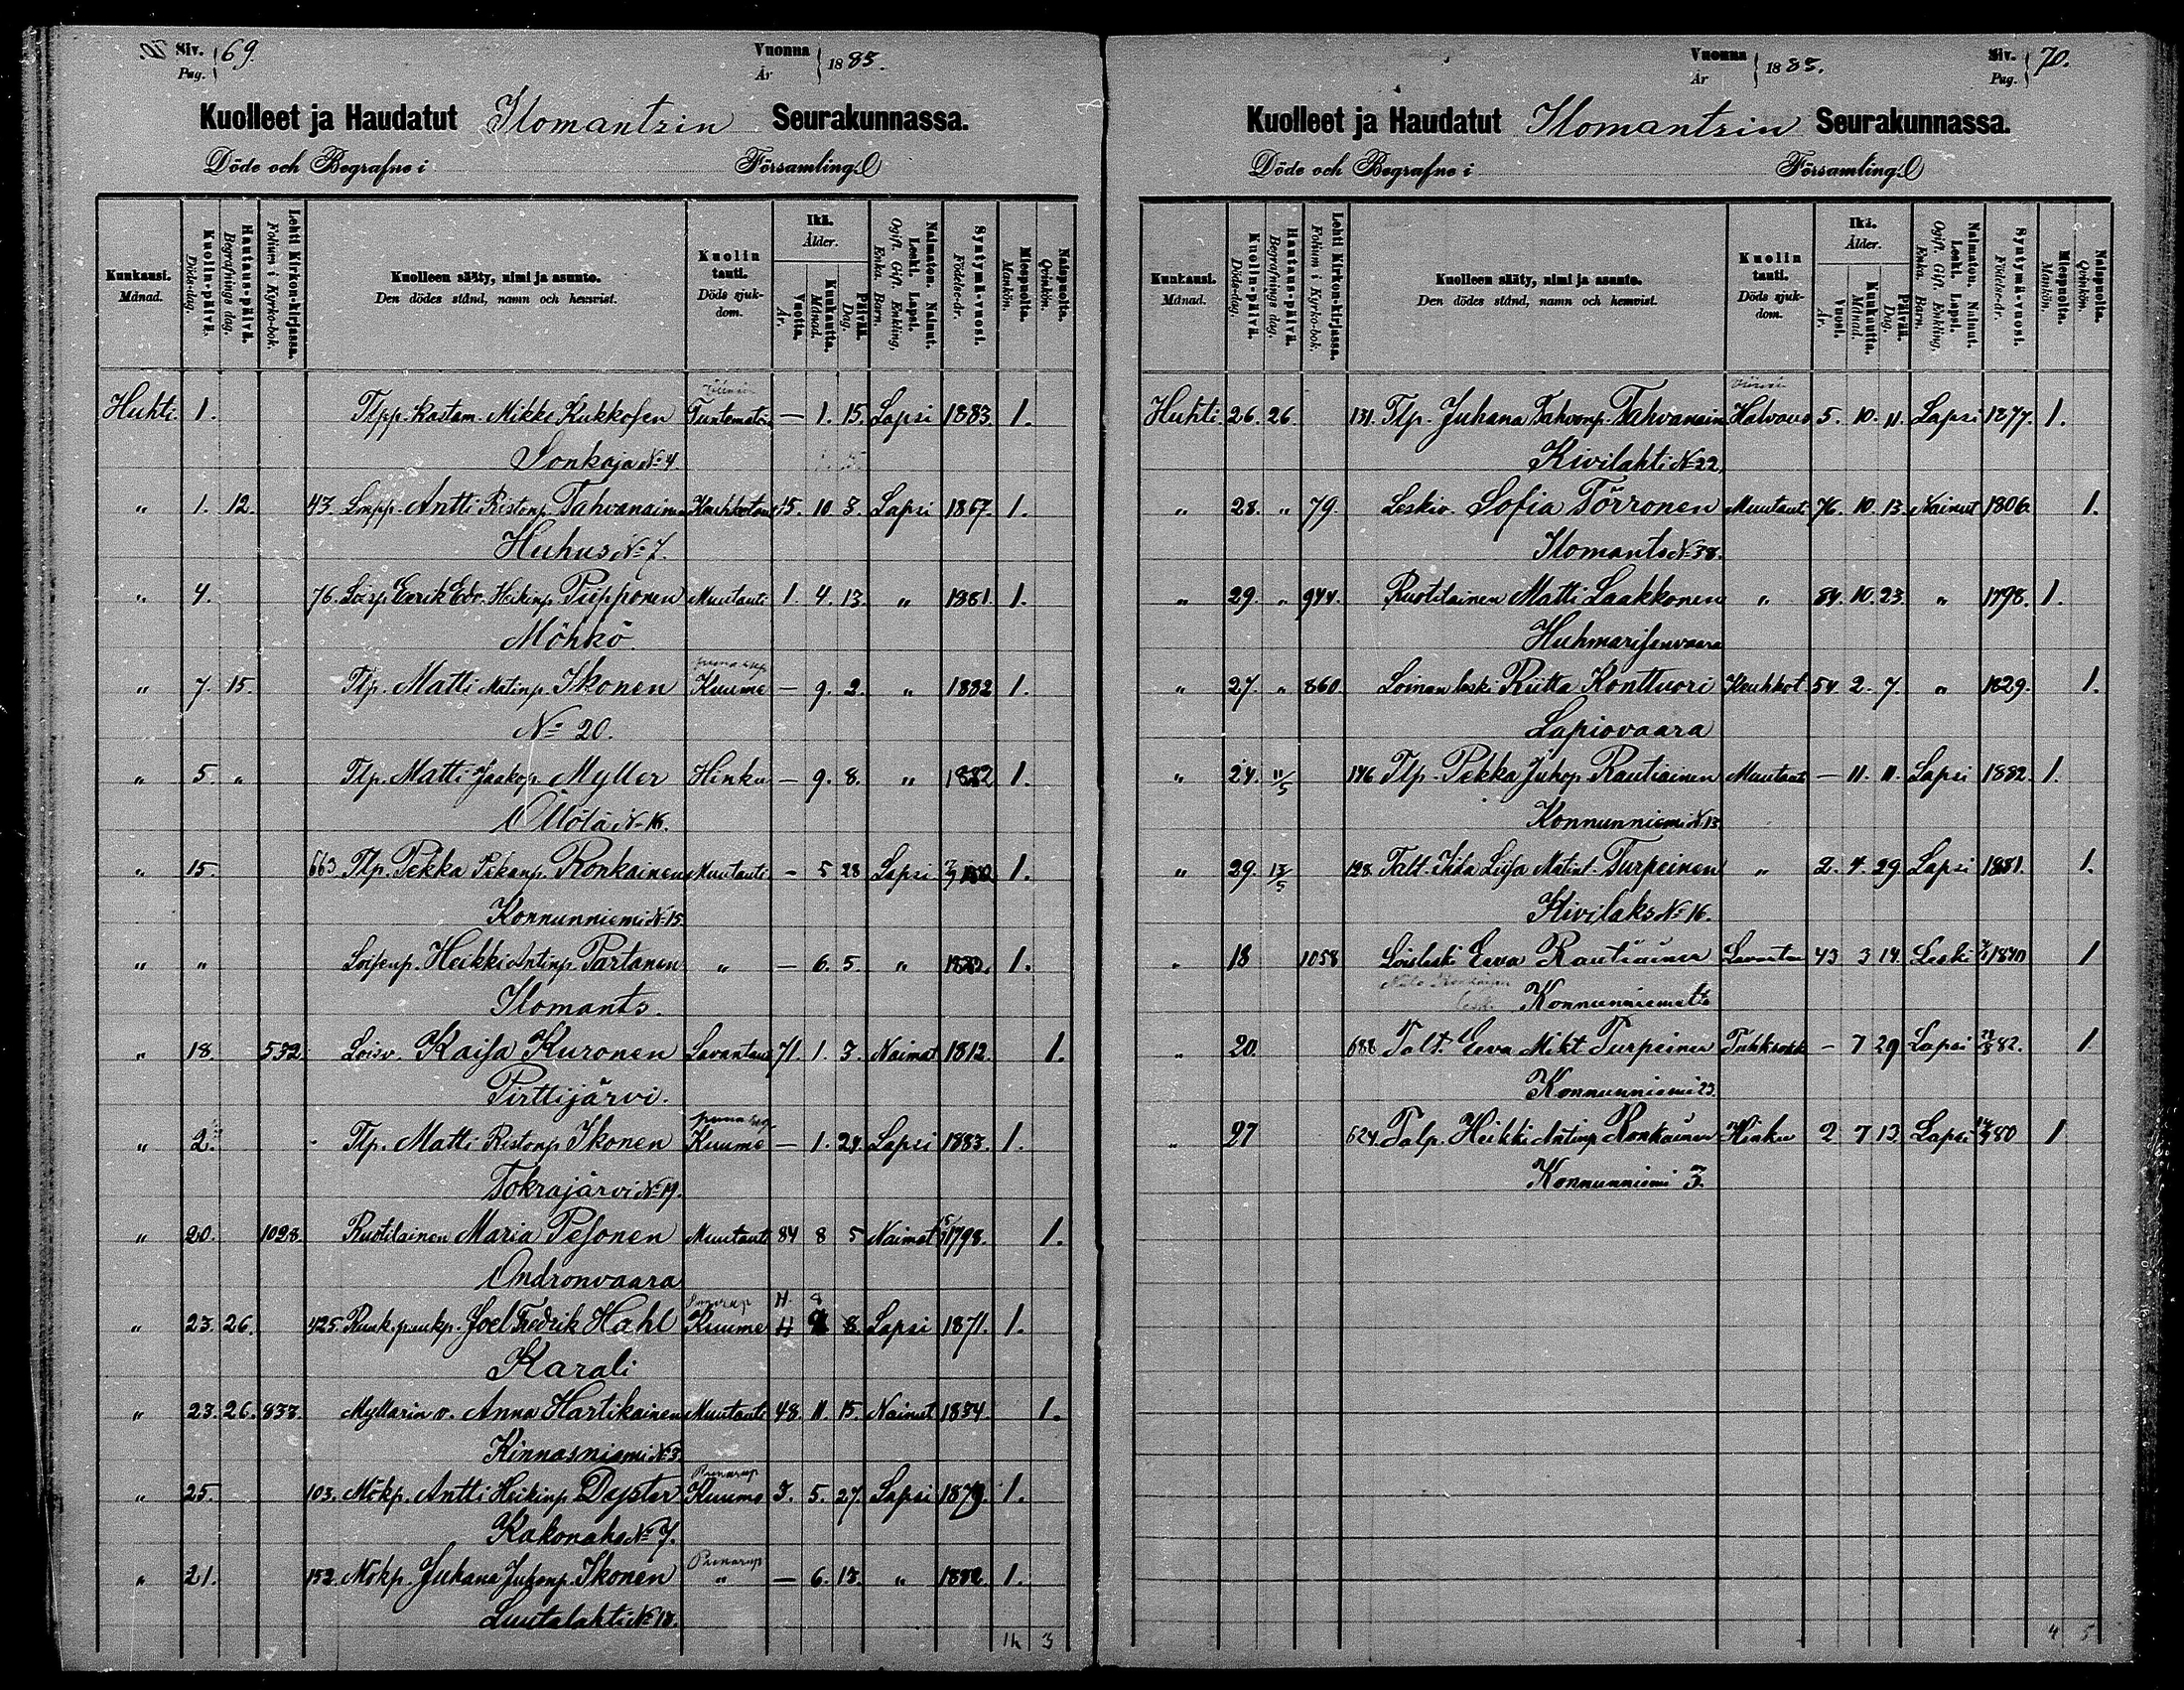 Siv. Pag. 69.
Vuonna År 1883.
Kuolleet ja Haudatut Ilomantsin Seurakunnassa.
Döde och Begrafne i Församling.
Kuukausi. Månad.
Kuolin-päivä. Döds-dag.
Hautaus-päivä. Begrafnings dag.
Lehti Kirkon-kirjassa. Folium i Kyrko-bok.
Kuolleen sääty, nimi ja asunto. Den dödes stånd, namn och hemvist.
Kuolin tauti. Döds sjukdom.
Ikä. Ålder.
Vuotta. År.
Kuukautta. Månad.
Päivää. Dag.
Naimaton. Nainut. Leski. Lapsi. Ogift. Gift. Enkling. Enka. Barn.
Syntymä-vuosi. Födelse-år.
Miespuolta. Mankön.
Naispuolta. Qvinkön.
Huhti. 1. Tlpp. kastam. Mikko Kukkosen Tuntematoin — 1. 15. Lapsi 1883. 1.
Sonkaja No 4
" 1. 12. 43. Antti Ristonp. Tahvanainen Keuhkotauti 15. 10. 3. Lapsi 1867. 1.
Huhus No 7.
" 4. 76. Loisp. Eerik Edv. Heikinp. Piipponen Muutauti 1. 4. 13. " 1881. 1.
Möhkö
" 7. 15. Tlp. Matti Matinp. Ikonen Kuume — 9. 2. " 1882 1.
No 20.
" 5. " Tlp. Matti Jaakop. Myller Hinku — 9. 8. " 1882 1.
Öllölä No 16.
" 15. 663. Tlp. Pekka Pekanp. Ronkainen Muutauti — 5 28 Lapsi 1882 1.
Konnunniemi No 15
" " Heikki Antinp. Partanen " — 6. 5. " 1882. 1.
Ilomants.
" 18. 532 Loisv. Kaisa Kuronen Lavantaut 71. 1. 3. Naimat 1812. 1.
Pirttijärvi.
" 2. Tlp. Matti Ristonp. Ikonen Kuume — 1. 24. Lapsi 1883. 1.
Tokrajärvi No 19.
" 20. 1028. Ruotilainen Maria Pesonen Muutaut 84 8 5 Naimat 1798. 1.
Ondronvaara
" 23. 26. 425. Joel Fredrik Hahl Kuume 11 8 8. Lapsi 1871. 1.
Karali
" 23. 26. 833. Myllarin v. Anna Hartikainen Muutauti 48. 11. 15. Nainut 1834. 1.
Kinnasniemi No 3
" 25. 103. Mökp. Antti Heikinp. Dapster Kuume 3. 5. 27. Lapsi 1879. 1.
Kakonaho No 7.
" 21. 152. Mökp. Juhana Juhonp. Ikonen " — 6. 13. " 1882. 1.
Luutalahti No 18.
3
Vuonna År 1883.
Siv. Pag. 70.
Kuolleet ja Haudatut Ilomantsin Seurakunnassa.
Döde och Begrafne i Församling.
Kuukausi. Månad.
Kuolin-päivä. Döds-dag.
Hautaus-päivä. Begrafnings dag.
Lehti Kirkon-kirjassa. Folium i Kyrko-bok.
Kuolleen sääty, nimi ja asunto. Den dödes stånd, namn och hemvist.
Kuolin tauti. Döds sjukdom.
Ikä. Ålder.
Vuosi. År.
Kuukautta. Månad.
Päivää. Dag.
Naimaton. Nainut. Leski. Lapsi. Ogift. Gift. Enkling. Enka. Barn.
Syntymä-vuosi. Födelse-år.
Miespuolta. Mankön.
Naispuolta. Qvinkön.
Huhti. 26. 26. 131. Tlp. Juhana Tahvonp. Tahvanain Halvaus 5. 10. 11. Lapsi 1877. 1.
Kivilahti No 22.
" 28. " 79. Leskiv. Sofia Törronen Muutaut 76. 10. 13. Nainut 1806. 1.
Ilomants No 38.
" 29. " 944. Ruotilainen Matti Laakkonen " 84. 10. 23. " 1798. 1.
Huhmarisenvaara
" 27. " 860. Loinan leski Riitta Konttuori Keuhkot 54 2. 7. " 1829. 1.
Lapiovaara
" 24. 11/5 146 Tlp. Pekka Juhop. Rautiainen Muutaut — 11. 11. Lapsi 1882. 1.
Konnunniemi No 13
" 29. 13/5 128. Talt. Ikda Liisa Matint. Turpeinen " 2. 4. 29. Lapsi 1881. 1.
Kivilaks No 16.
" 18 1058 Loisleski Eeva Rautiainen Lavantau 43 3 14. Leski 1840 1
Konnunniemeltä
" 20. 688 Talt. Eeva Mikt Turpeinen Tuhkrokk — 7 29 Lapsi 82. 1
Konnunniemi 23.
" 27 624. Talp. Heikki Antinp. Ronkainen Hinku 2 7 13. Lapsi 80 1
Konnunniemi 3.
4 5